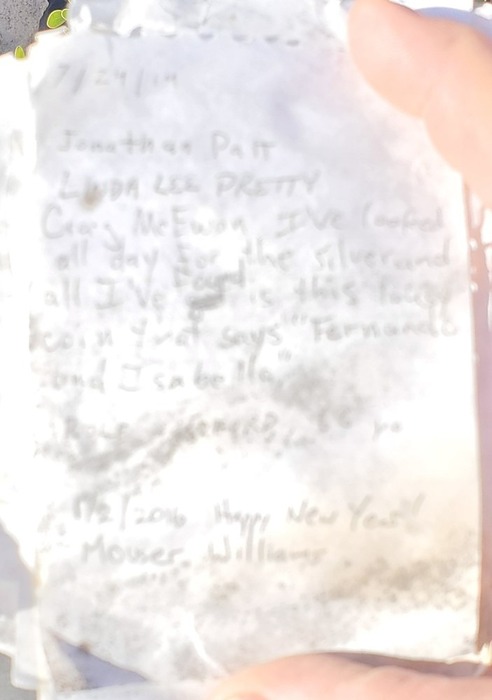 7/24/14
Jonathan Pait
LINDA LEE PRETTY
Craig McEwan I've looked
all day for the silver and
all I've found is this lousy
coin that says "Fernando
and Isabella"
1/2/2016 Happy New Year!!
Mouser Williams